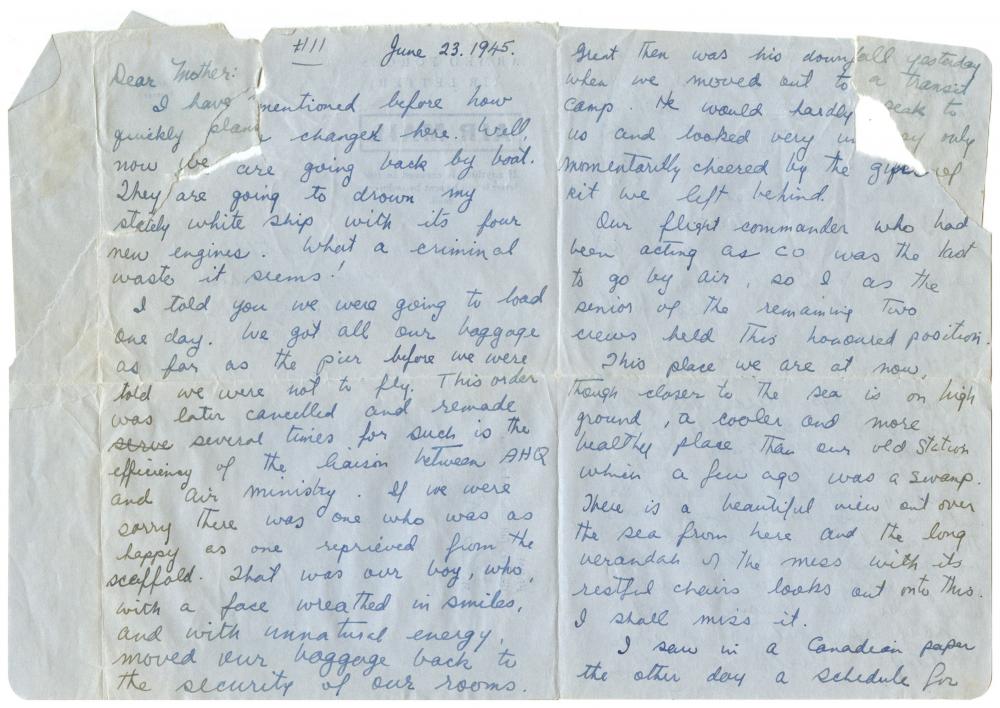 #111 June 23. 1945.
Dear Mother:
I have mentioned before how
quickly plans changed here. Well,
now we are going back by boat.
They are going to drown my
stately white ship with its four
new engines. What a criminal
waste it seems!
I told you we were going to load
one day. We got all our baggage
as far as the pier before we were
told we were not to fly. This order
was later cancelled and remade
serve several times for such is the
efficiency of the liaison between AHQ
and Air Ministry. If we were
sorry there was one who was as
happy as one reprieved from the
scaffold. That was our boy, who,
with a face wreathed in smiles,
and with unnatural energy,
moved our baggage back to
the security of our rooms.
Great then was his downfall yesterday
when we moved out to a transit
camp. He would hardly speak to
us and looked very only
momentarily cheered by the of
kit we left behind.
Our flight commander who had
been acting as CO was the last
to go by air, so I as the
senior of the remaining two
crews held this honoured position.
This place we are at now,
though closer to the sea is on high
ground, a cooler and more
healthy place than our old station
which a few ago was a swamp.
There is a beautiful view out over
the sea from here and the long
verandah of the mess with its
restful chairs looks out onto this.
I shall miss it.
I saw in a Canadian paper
the other day a schedule for